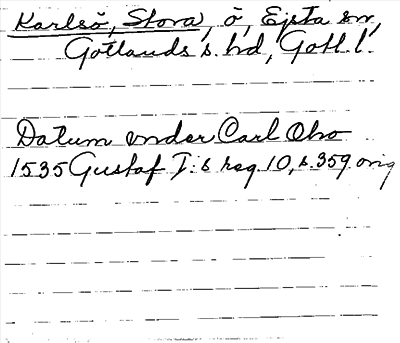 Karlsö, Stora, ö, Eksta sn,
Gotlands s. hd, Gotl. l.
Datum under Carl Ohso
1535 Gustaf I:s reg. 10, s. 359 orig